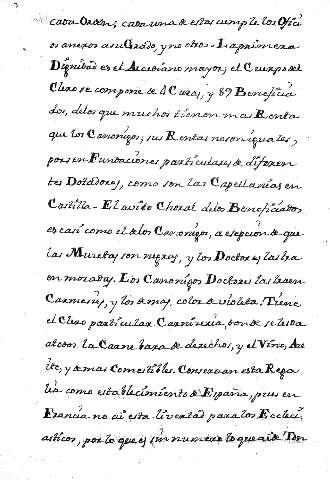 cada Orden; cada una de estas cumple los Ofici
os anexos a su Grado, y no otros. La primera
Dignidad es el Arcediano mayor; el Cuerpo del
Clero se compone de 4 Curas, y 87 Beneficia
dos, delos que muchos tienen mas Renta
que los Canonigos; sus Rentas no son iguales,
por ser Fundaciones particulares de diferen
tes Dotadores, como son las Capellanias en
Castilla. El avito Choral delos Beneficiados
es casi como el delos Canonigos, a esepcion de que
las Muzetas son negras, y los Doctores las tra
en moradas. Los Canonigos Doctores las traen
Carmesies, y los demas, color de violeta. Tiene
el Clero particular Carniceria, donde se les da
atodos la Carne vara de derechos, y el Vino, Ace
ite, y demas Comestibles. Conservan esta Rega
lia como establecimiento de España, pues en
Francia no ai esta livertad para los Eclesi
asticos, por lo que es sin numero lo que ai de